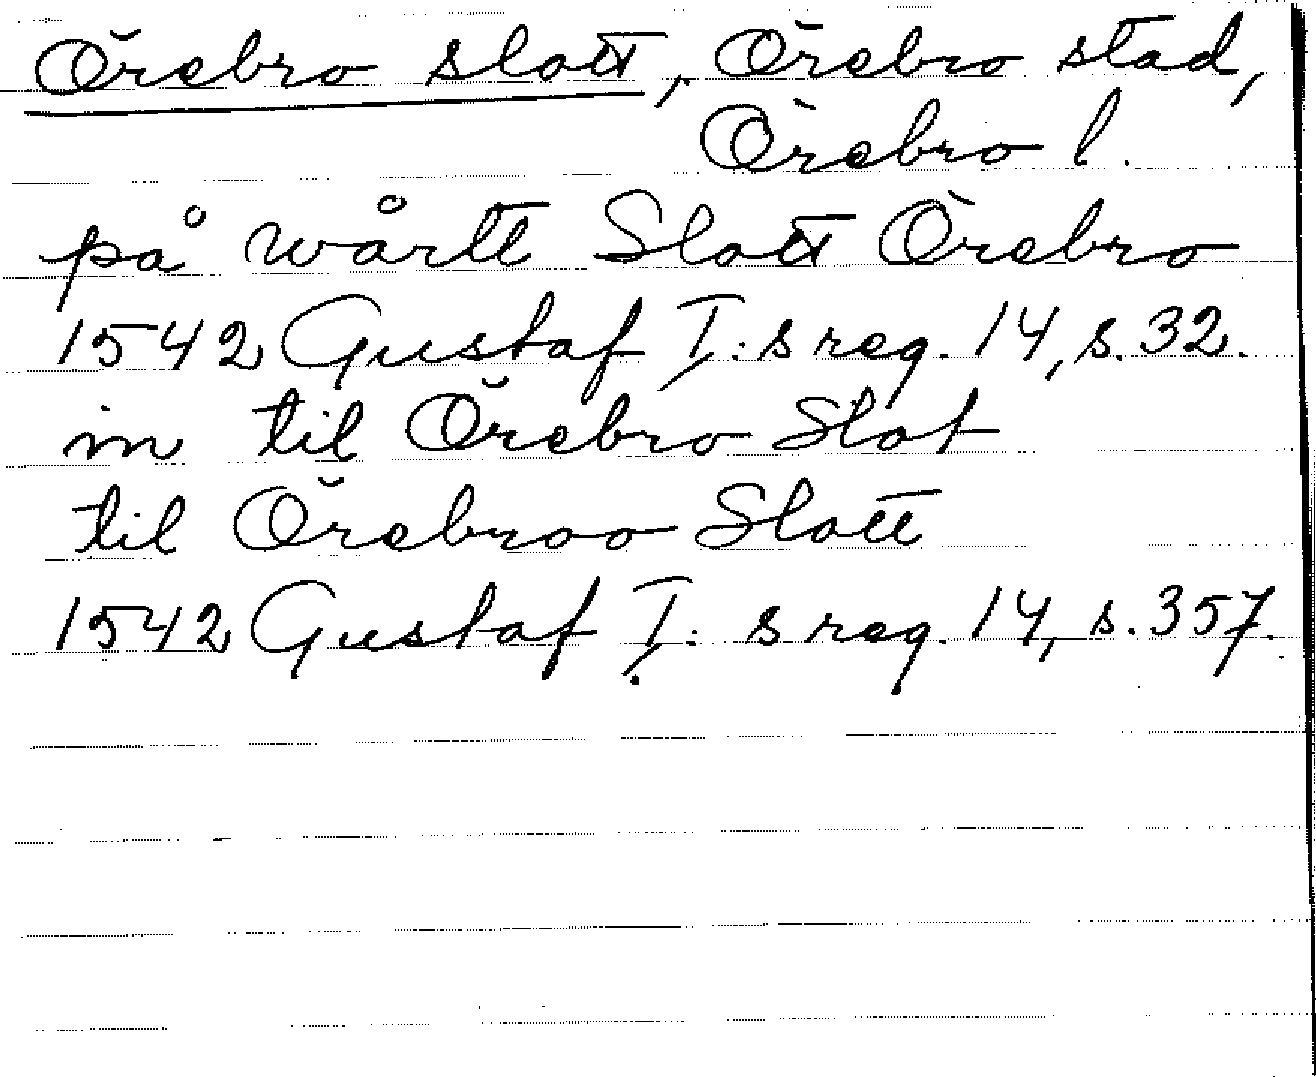 Örebro slott, Örebro stad,
Örebro l.
på wårtt Slott Örebro
1542 Gustaf I:s reg. 14, s. 32.
in til Örebro Slot
til Örebroo Slott
1542 Gustaf I:s reg. 14, s. 357.